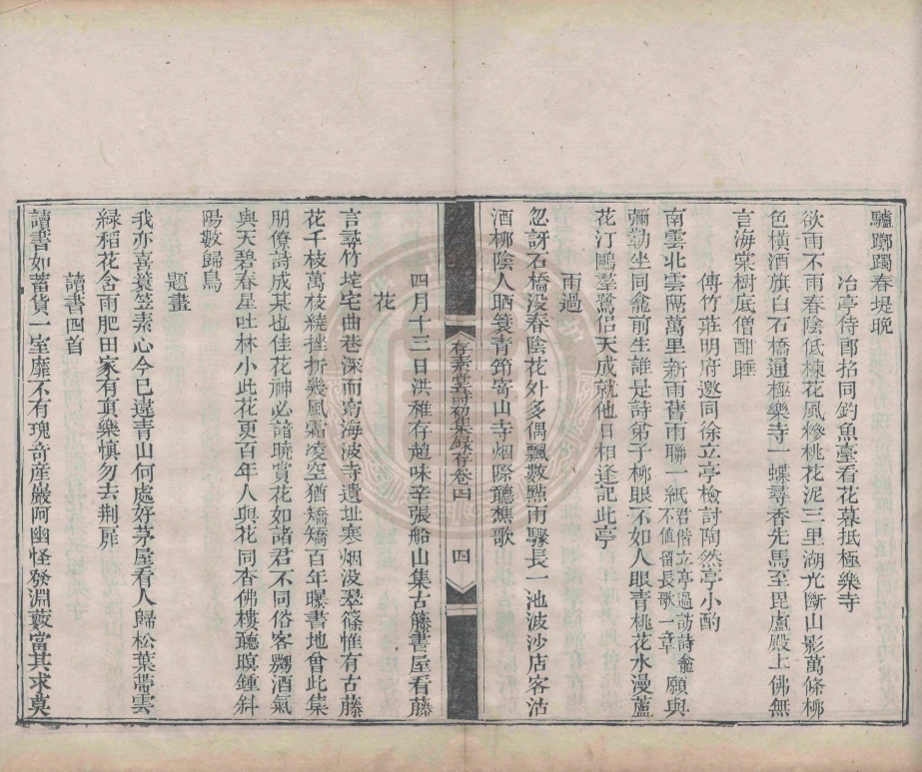 驢躑躅春堤晚
冶亭侍郎招同釣魚臺看花暮抵極樂寺
欲雨不雨春陰低楝花風糝桃花泥三里湖光斷山影萬條柳
色橫酒旗白石橋通極樂寺一蝶尋香先馬至毘盧殿上佛無
言海棠樹底僧酣睡
傅竹莊明府邀同徐立亭檢討陶然亭小酌
南雲北雲隔萬里新雨舊雨聯一紙不值留長歌一章願與
昔偕立亭過訪詩龕
彌勒坐同龕前生誰是詩弟子柳眼不如人眼青桃花水漫蘆
花汀鷗羣鷺侶天成就他日相逢記此亭
雨過
忽訝石橋沒春陰花外多偶飄數點雨驟長一池波沙店客沽
酒柳陰人晒簑青筇寄山寺烟際聽樵歌
存素堂詩初集錄存卷四
四
四月十三日洪稚存趙味辛張船山集古藤書屋看藤
花
言尋竹垞宅曲巷深而窈海波寺遺址寒烟沒翠篠惟有古藤
花千枝萬枝繞挫折幾風霜凌空猶矯矯百年曝書地曾此集
朋僚詩成某也佳花神必諳曉賞花如諸君不同俗客嬲酒氣
與天碧春星吐林小此花更百年人與花同杳佛樓聽暝鐘斜
陽數歸鳥
題畫
我亦喜簑笠素心今已違青山何處好茅屋看人歸松葉帶雲
綠稻花含雨肥田家有真樂慎勿去荆扉
讀書四首
讀書如蓄貨一室靡不有瑰奇產巖阿幽怪發淵藪當其求莫